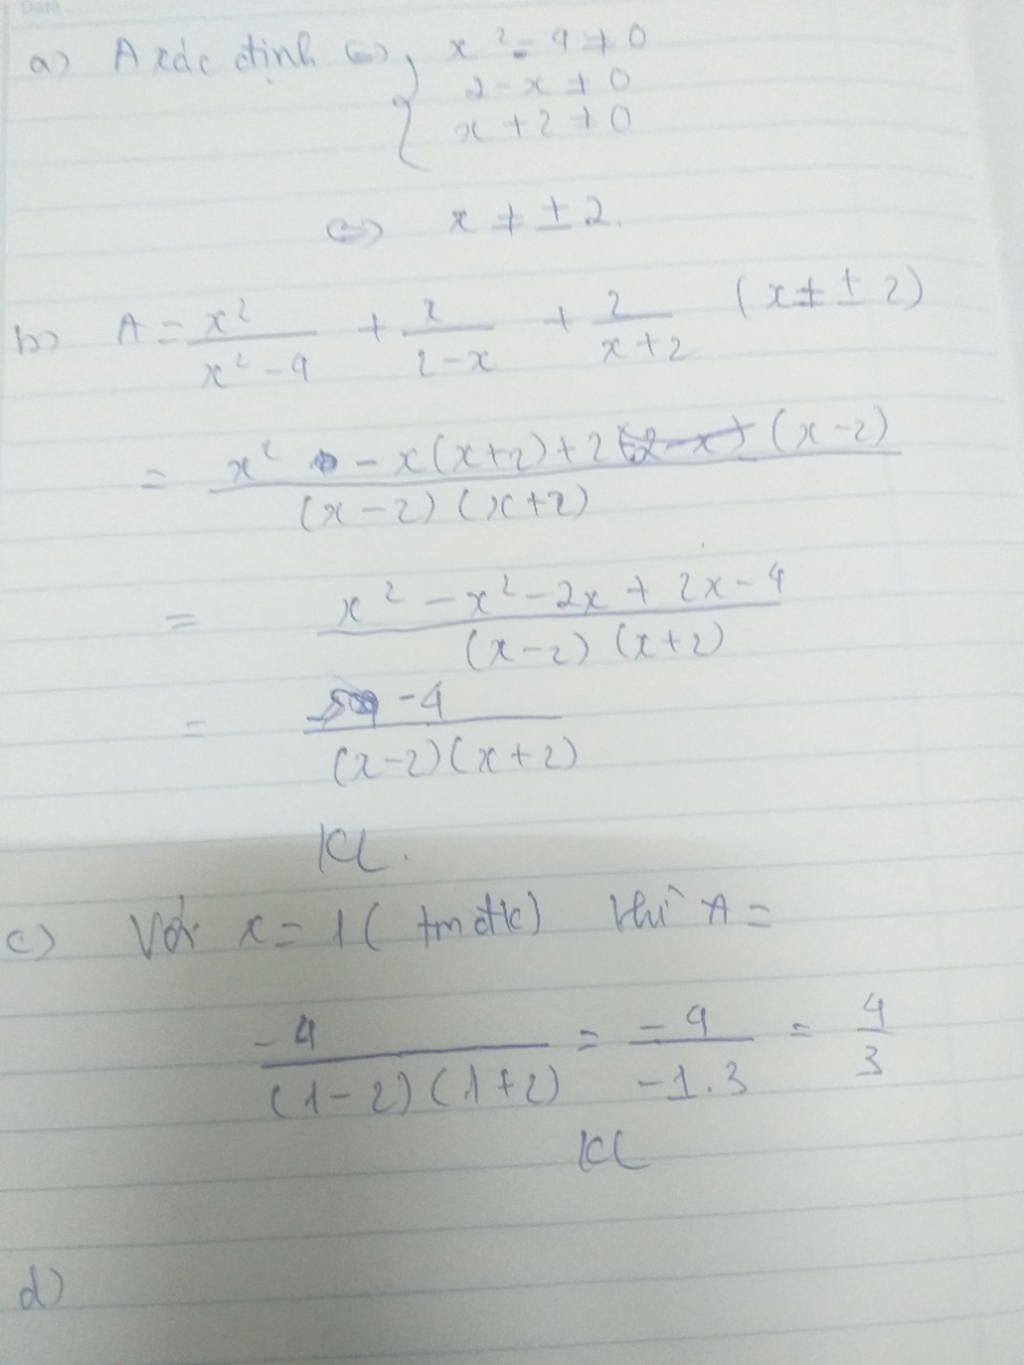 Date
a) A xác định <=> { x² - 4 ≠ 0
2 - x ≠ 0
x + 2 ≠ 0
<=> x ≠ ± 2.
b) A = x²/(x² - 4) + x/(2 - x) + 2/(x + 2) (x ≠ ± 2)
= (x² - x(x+2) + 2(x - 2))/((x - 2)(x + 2))
= (x² - x² - 2x + 2x - 4)/((x - 2)(x + 2))
= -4/((x - 2)(x + 2))
KL.
c) Với x = 1 (tmđk) thì A =
-4/((1 - 2)(1 + 2)) = -4/(-1.3) = 4/3
KL
d)